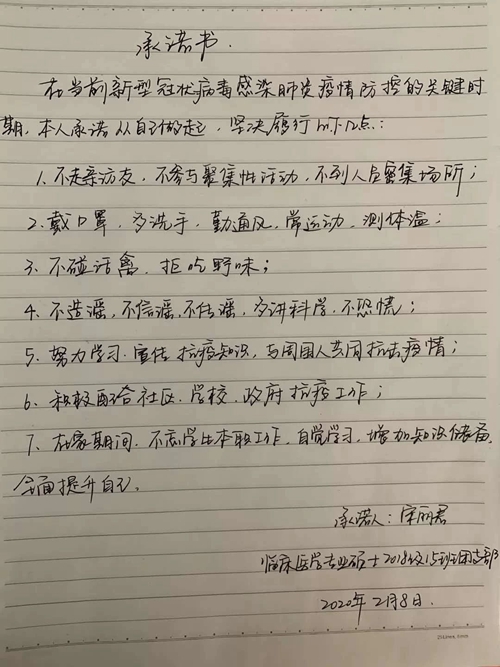 承诺书.
在当前新型冠状病毒感染肺炎疫情防控的关键时
期,本人承诺从自己做起,坚决履行以下几点:
1、不走亲访友,不参与聚集性活动,不到人员密集场所;
2、戴口罩,多洗手,勤通风,常运动,测体温;
3、不碰活禽,拒吃野味;
4、不造谣,不信谣,不传谣,多讲科学,不恐慌;
5、努力学习、宣传抗疫知识,与周围人共同抗击疫情;
6、积极配合社区、学校、政府抗疫工作;
7、在家期间,不忘学生本职工作,自觉学习,增加知识储备,
全面提升自己.
承诺人:宋丽君
临床医学专业硕士2018级15班团支部
2020年2月8日.